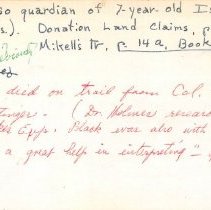 so guardian of 7-year old I
s). Donation Land Claims, p
Mikell's Tr, p 14a, Book
died on trail from Cal.
(Dr. Holmes resear
Black was also with
a great help in interpreting" -